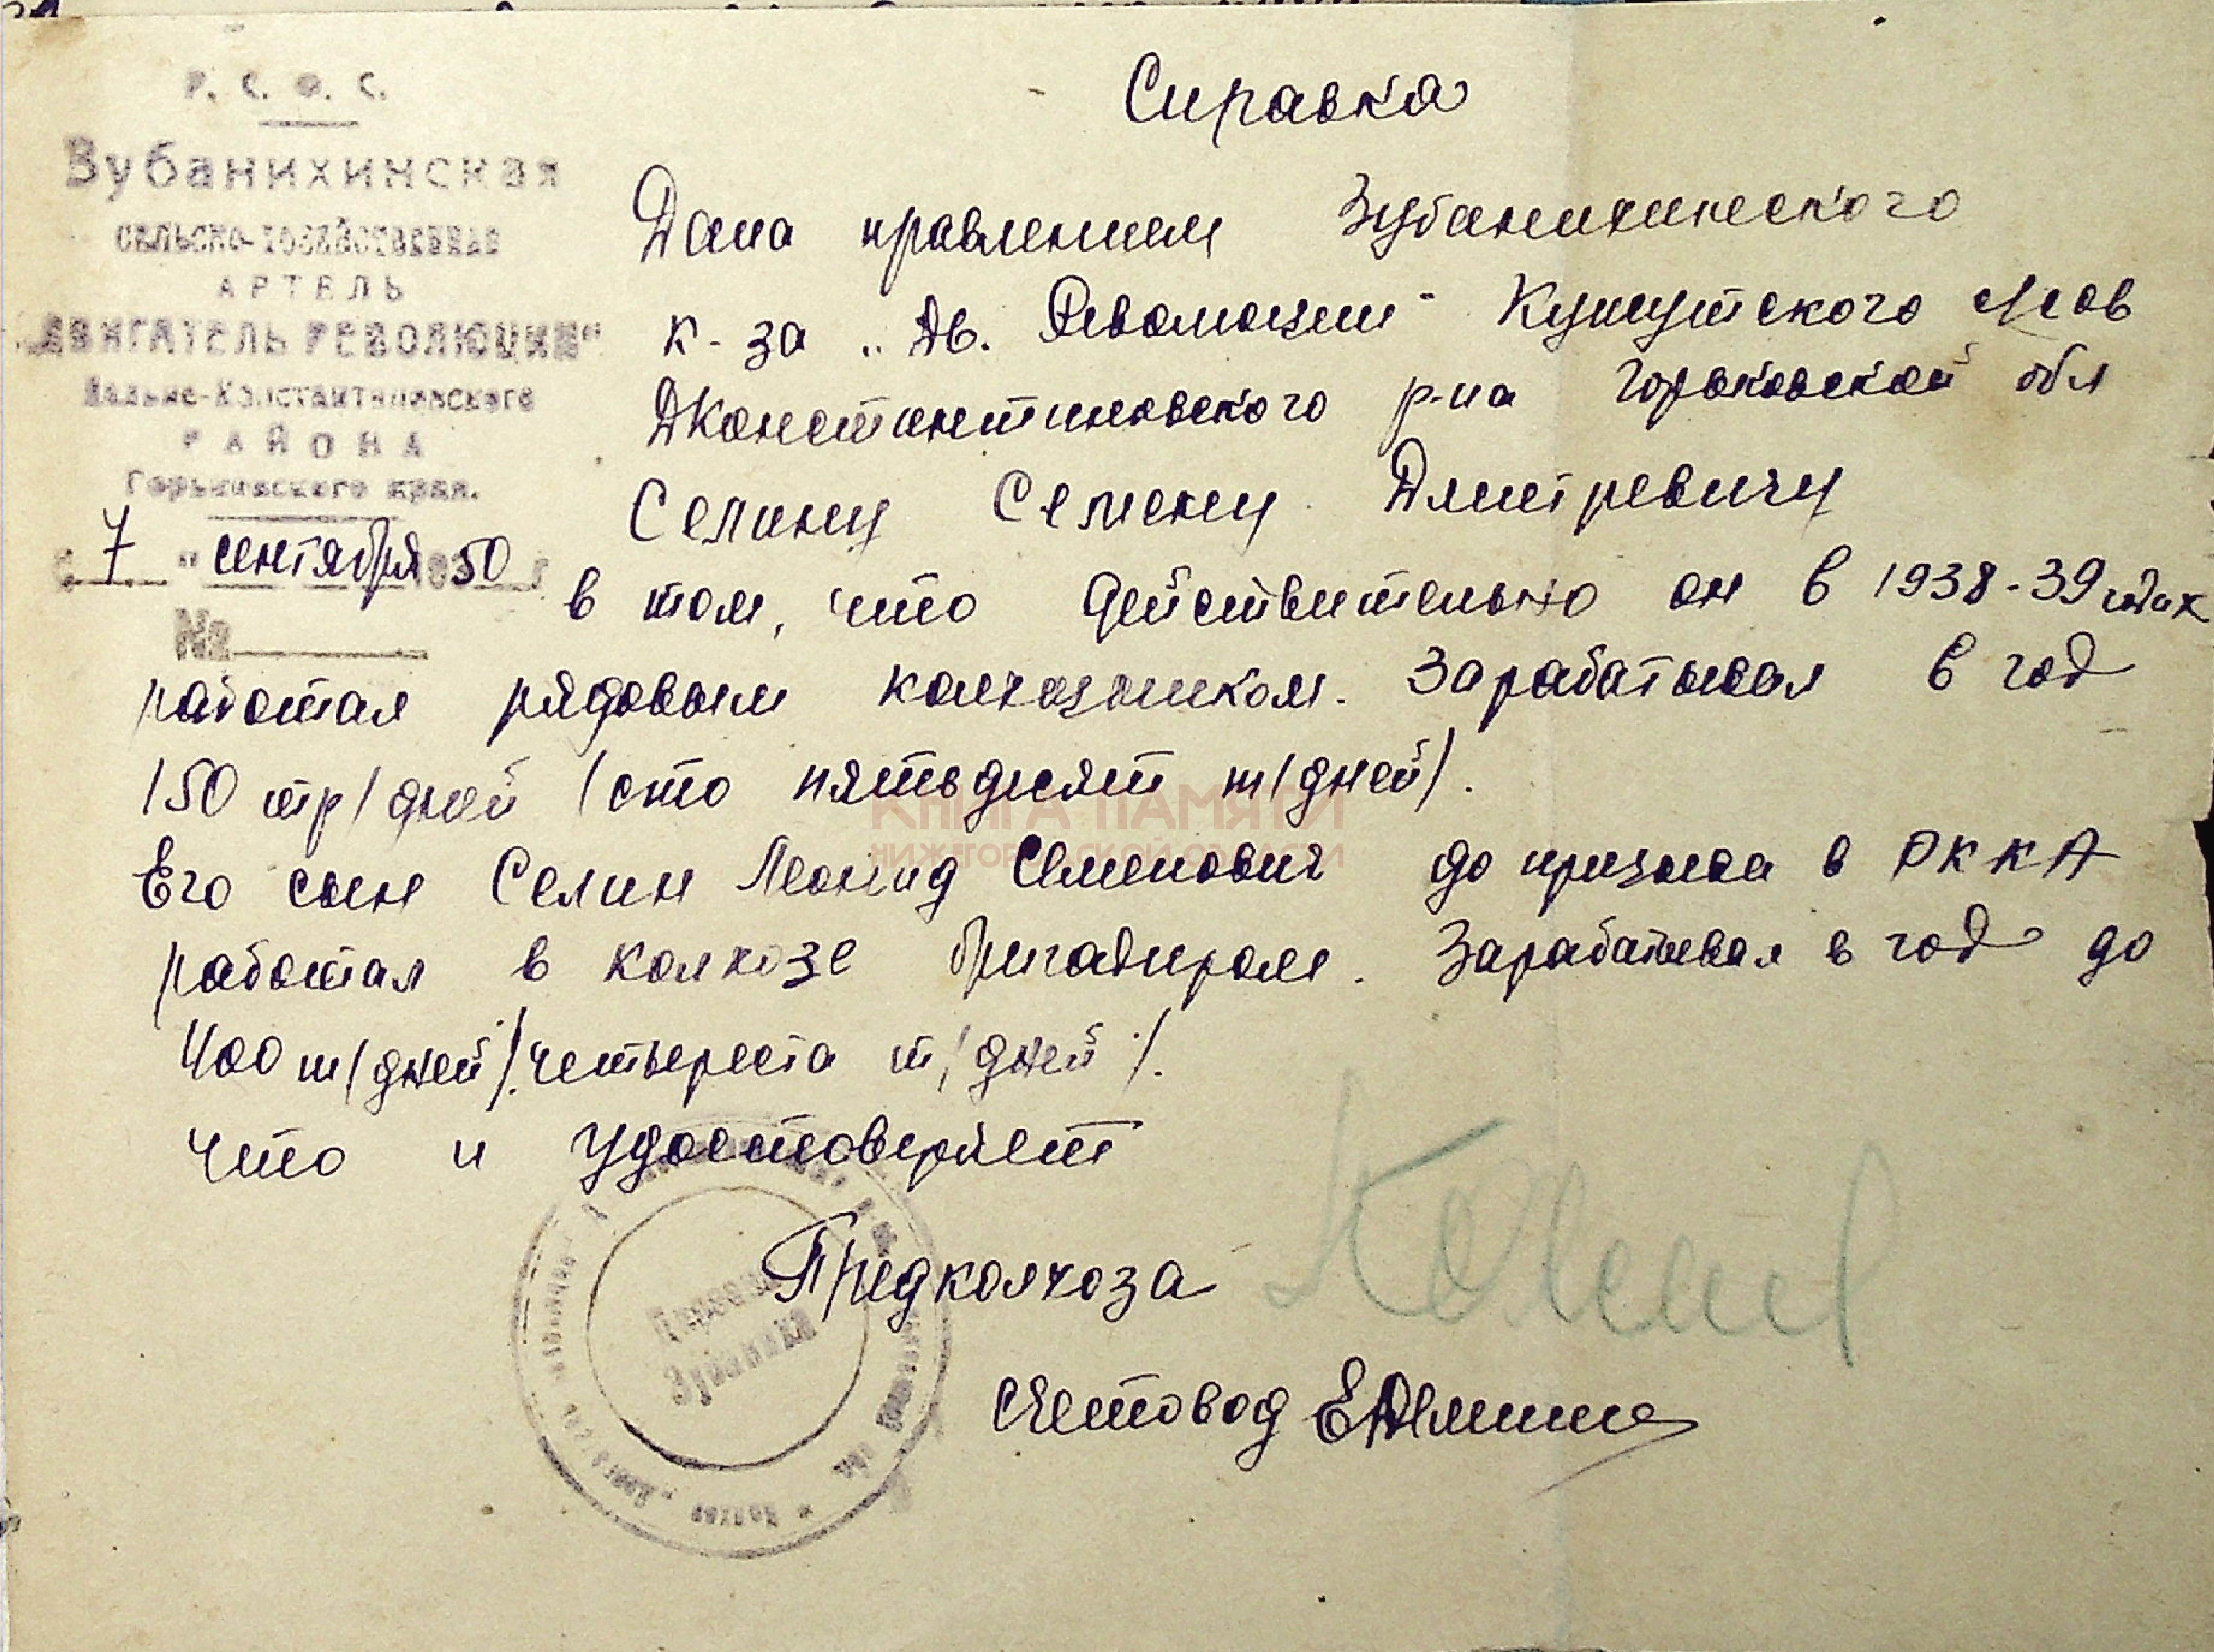 Р. С. Ф. С.
Зубанихинская
сельско-хозяйственная
АРТЕЛЬ
„ДВИГАТЕЛЬ РЕВОЛЮЦИИ"
Дальне-Константиновского
РАЙОНА
Горьковского края.
7 " сентября 50
№
Справка
Дана правлением Зубанихинского
к-за „Дв. Революции" Кужутского с/сов
ДКонстантиновского р-на Горьковской обл
Селину Семену Дмитревичу
в том, что действительно он в 1938-39 годах
работал рядовым колхозником. Зарабатывал в год
150 тр/дней /сто пятьдесят т/дней/.
Его сын Селин Леонид Семенович до призыва в РККА
работал в колхозе бригадиром. Зарабатывал в год до
400 т/дней/. четыреста т/дней/.
Что и удостоверяет
Предколхоза
Счетовод
КНИГА ПАМЯТИ
НИЖЕГОРОДСКОЙ ОБЛАСТИ